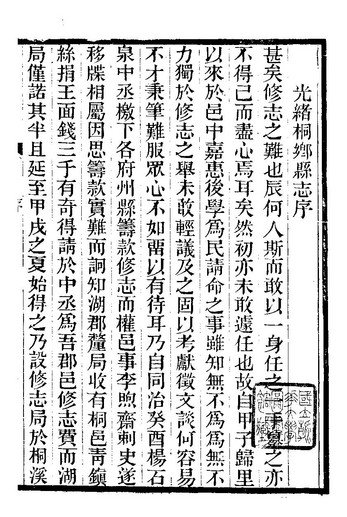 光緒桐鄉縣志序
甚矣修志之難也辰何人斯而敢以一身任之手纂之亦
不得已而盡心焉耳矣然初亦未敢遽任也故自甲子歸里
以來於邑中嘉惠後學爲民請命之事雖知無不爲爲無不
力獨於修志之舉未敢輕議及之固以考獻徵文談何容易
不才秉筆難服眾心不如畱以有待耳乃自同治癸酉楊石
泉中丞檄下各府州縣籌款修志而權邑事李煦齋刺史遂
移牒相屬因思籌款實難而詗知湖郡釐局收有桐邑靑鎭
絲捐王面錢三千有奇得請於中丞爲吾郡邑修志費而湖
局僅諾其半且延至甲戌之夏始得之乃設修志局於桐溪
序